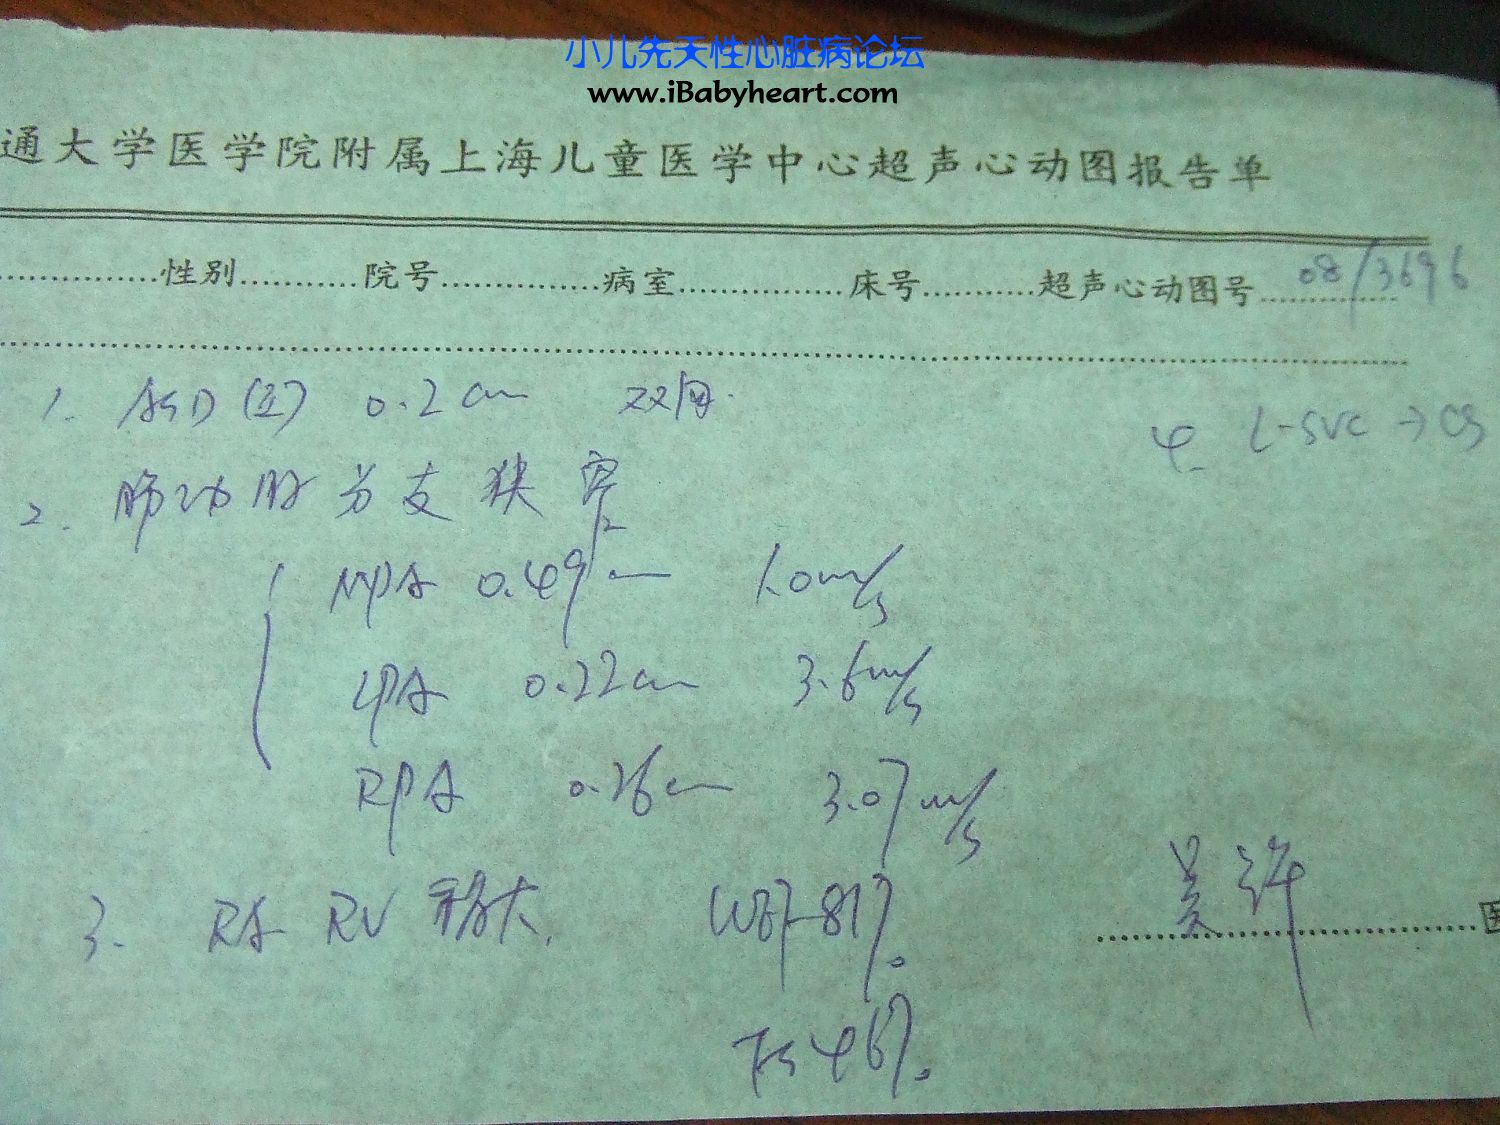 小儿先天性心脏病论坛
www.iBabyheart.com
通大学医学院附属上海儿童医学中心超声心动图报告单
性别............院号................病室................床号............超声心动图号 08/3696
1. ASD (Ⅱ) 0.2cm 双向.
4. L-SVC → CS
2. 肺动脉分支狭窄
MPA 0.49cm 1.0m/s
LPA 0.22cm 3.6m/s
RPA 0.26cm 3.07m/s
3. RA RV 稍大. LVEF 81%
吴 许 医
FS 46%